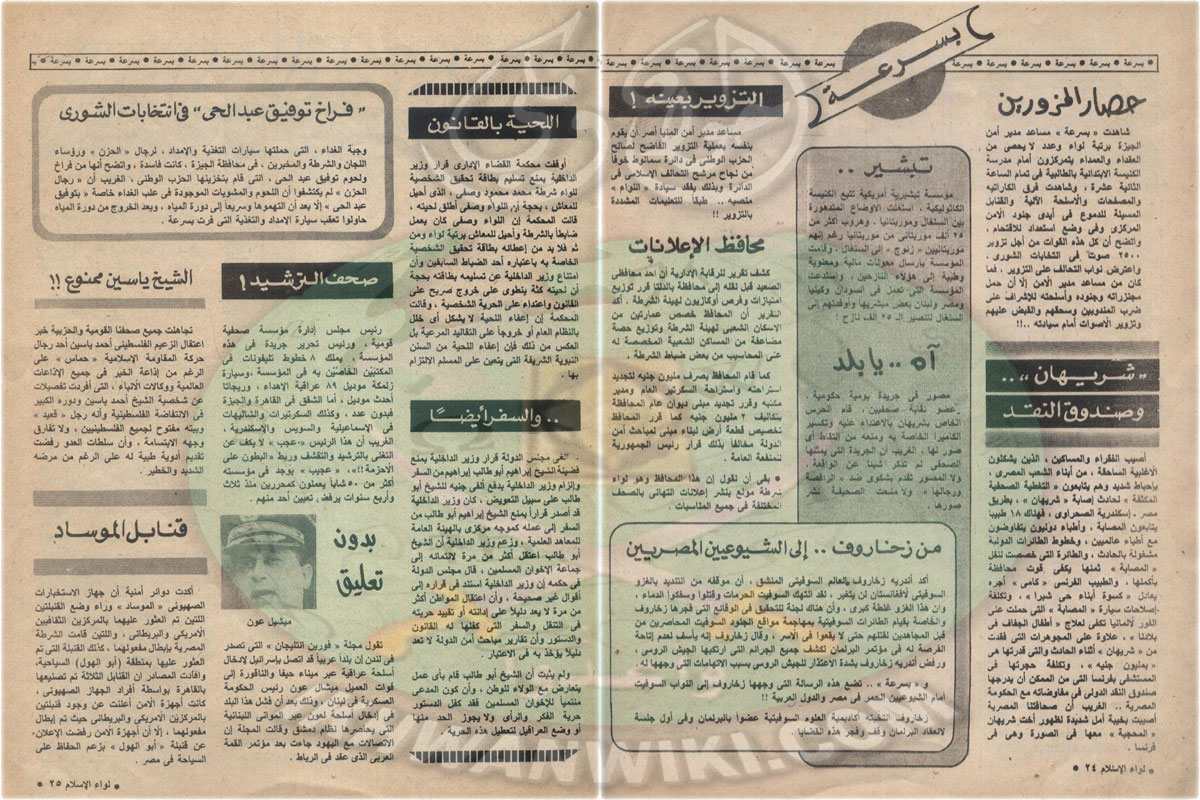 بسرعة
بسرعة ● بسرعة ● بسرعة ● بسرعة ● بسرعة
حصار المزورين
شاهدت « بسرعة » مساعد مدير أمن
الجيزة برتبة لواء وعدد لا يحصى من
العقداء والعمداء يتمركزون أمام مدرسة
الكنيسة الابتدائية بالطالبية فى تمام الساعة
الثانية عشرة ، وشاهدت فرق الكاراتيه
والمصفحات والأسلحة الآلية والقنابل
المسيلة للدموع فى أيدى جنود الأمن
المركزى وفى وضع استعداد للاقتحام ،
واتضح أن كل هذه القوات من أجل تزوير
٢٥٠٠ صوتاً فى انتخابات الشورى .
واعترض نواب التحالف على التزوير ، فما
كان من مساعد مدير الأمن إلا أن حمل
مجنزراته وجنوده وأسلحته للإشراف على
ضرب المندوبين وسحقهم والقبض عليهم
وتزوير الأصوات أمام سيادته ..!!
« شريهان » ..
وصندوق النقد
أصيب الفقراء والمساكين ، الذين يشكلون
الأغلبية الساحقة ، من أبناء الشعب المصرى ،
بإحباط شديد وهم يتابعون « التغطية الصحفية
المكثفة » لحادث إصابة « شريهان » ، بطريق
مصر ـ إسكندرية الصحراوى ، فهناك ١٨ طبيبا
يتابعون المصابة ، وأطباء دوليون يتفاوضون
مع أطباء عالميين ، وخطوط الطائرات الدولية
مشغولة بالحادث ، والطائرة التى خصصت لنقل
« المصابة » ثمنها يكفى قوت محافظة
بأكملها ، والطبيب الفرنسى « كامى » أجره
يعادل « كسوة أبناء حى شبرا » ، وتكلفت
إصلاحات سيارة « المصابة » التى حملت على
الفور لألمانيا تكفى لعلاج « أطفال الجفاف فى
بلادنا » ، علاوة على المجوهرات التى فقدت
من « شريهان » أثناء الحادث والتى قدرتها هى
« بمليون جنيه » ، وتكلفة حجرتها فى
المستشفى بفرنسا التى من الممكن أن يدرجها
صندوق النقد الدولى فى مفاوضاته مع الحكومة
المصرية .. الغريب أن صحافتنا المصرية
أصيبت بخيبة أمل شديدة لظهور أخت شريهان
« المحجبة » معها فى الصورة وهى فى
فرنسا .
تبشير ..
مؤسسة تبشيرية أمريكية تتبع الكنيسة
الكاثوليكية ، استغلت الأوضاع المتدهورة
بين السنغال وموريتانيا ، وهروب أكثر من
٢٥ ألف موريتانى من موريتانيا رغم إنهم
موريتانيين « زنوج » إلى السنغال ، وقامت
المؤسسة بإرسال معونات مالية ومعنوية
وطبية إلى هؤلاء النازحين ، واستدعت
المؤسسة التى تعمل فى السودان وكينيا
ومصر ولبنان بعض مبشريها وأوفدتهم إلى
السنغال لتنصير ال ٢٥ ألف نازح !
آه .. يا بلد
مصور فى جريدة يومية حكومية
عضو نقابة صحفيين ، قام الحرس
الخاص بشريهان بالاعتداء عليه وتكسير
الكاميرا الخاصة به ومنعه من التقاط أى
صور لها ، الغريب أن الجريدة التى يمثلها
الصحفى لم تذكر شيئا عن الواقعة ،
ولا المصور تقدم بشكوى ضد « الراقصة
ورجالها » ولا منعت الصحيفة نشر
صورها .
التزوير بعينه !
مساعد مدير أمن المنيا أصر أن يقوم
بنفسه بعملية التزوير الفاضح لصالح
الحزب الوطنى فى دائرة سمالوط خوفاً
من نجاح مرشح التحالف الإسلامى فى
الدائرة وبذلك يفقد سيادة « اللواء »
منصبه .. طبقاً للتعليمات المشددة
بالتزوير !!
محافظ الإعلانات
كشف تقرير للرقابة الإدارية أن أحد محافظى
الصعيد قبل نقله إلى محافظة بالدلتا قرر توزيع
امتيازات وفرص أوكازيون لهيئة الشرطة . أكد
التقرير أن المحافظ خصص عمارتين من
الاسكان الشعبى لهيئة الشرطة وتوزيع حصة
مضاعفة من المساكن الشعبية المخصصة له
على المحاسيب من بعض ضباط الشرطة .
كما قام المحافظ بصرف مليون جنيه لتجديد
استراحته واستراحة السكرتير العام ومدير
مكتبه وقرر تجديد مبنى ديوان عام المحافظة
بتكاليف ٢ مليون جنيه كما قرر المحافظ
تخصيص قطعة أرض لبناء مبنى لمباحث أمن
الدولة مخالفاً بذلك قرار رئيس الجمهورية
للمنفعة العامة .
● بقى أن نقول إن هذا المحافظ وهو لواء
شرطة مولع بنشر إعلانات التهانى بالصحف
المختلفة فى جميع المناسبات .
من زخاروف .. إلى الشيوعيين المصريين
أكد أندريه زخاروف العالم السوفيتى المنشق ، أن موقفه من التنديد بالغزو
السوفيتى لأفغانستان لن يتغير ، لقد انتهك السوفيت الحرمات وقتلوا وسفكوا الدماء ،
وان هذا الغزو غلطة كبرى ، وأن هناك لجنة للتحقيق فى الوقائع التى فجرها زخاروف
والخاصة بقيام الطائرات السوفيتية بمهاجمة مواقع الجنود السوفيت المحاصرين من
قبل المجاهدين لقتلهم حتى لا يقعوا فى الأسر ، وقال زخاروف إنه يأسف لعدم إتاحة
الفرصة له فى مؤتمر البرلمان لكشف جميع الجرائم التى ارتكبها الجيش الروسى ،
ورفض أندريه زخاروف بشدة الاعتذار للجيش الروسى بسبب الاتهامات التى وجهها له .
و « بسرعة » .. تضع هذه الرسالة التى وجهها زخاروف إلى النواب السوفيت
أمام الشيوعيين الحمر فى مصر والدول العربية !!
زخاروف انتخبته أكاديمية العلوم السوفيتية عضواً بالبرلمان وفى أول جلسة
لانعقاد البرلمان وقف وفجر هذه القضايا .
● لواء الإسلام ٢٤ ●
بسرعة ● بسرعة ● بسرعة ● بسرعة ● بسرعة
اللحية بالقانون
أوقفت محكمة القضاء الإدارى قرار وزير
الداخلية بمنع تسليم بطاقة تحقيق الشخصية
للواء شرطة محمد محمود وصفى ، الذى أحيل
للمعاش ، بحجة أن اللواء وصفى أطلق لحيته ،
قالت المحكمة إن اللواء وصفى كان يعمل
ضابطاً بالشرطة وأحيل للمعاش برتبة لواء ومن
ثم فلا بد من إعطائه بطاقة تحقيق الشخصية
الخاصة به باعتباره أحد الضباط السابقين وأن
امتناع وزير الداخلية عن تسليمه بطاقته بحجة
أن لحيته كثة ينطوى على خروج صريح على
القانون واعتداء على الحرية الشخصية ، وقالت
المحكمة إن إعفاء اللحية لا يشكل أى خلل
بالنظام العام أو خروجاً على التقاليد المرعية بل
العكس من ذلك فإن إعفاء اللحية من السنن
النبوية الشريفة التى يتعين على المسلم الالتزام
بها .
.. والسفر أيضًا
ألغى مجلس الدولة قرار وزير الداخلية بمنع
فضيلة الشيخ إبراهيم أبو طالب إبراهيم من السفر
وإلزام وزير الداخلية بدفع ألفى جنيه للشيخ أبو
طالب على سبيل التعويض ، كان وزير الداخلية
قد أصدر قراراً بمنع الشيخ إبراهيم أبو طالب من
السفر إلى عمله كموجه مركزى بالهيئة العامة
للمعاهد العلمية ، وزعم وزير الداخلية أن الشيخ
أبو طالب اعتقل أكثر من مرة لانتمائه إلى
جماعة الإخوان المسلمين ، قال مجلس الدولة
فى حكمه إن وزير الداخلية استند فى قراره إلى
أقوال غير صحيحة ، وأن اعتقال المواطن أكثر
من مرة لا يعد دليلاً على إدانته أو تقييد حريته
فى التنقل والسفر التى كفلها له القانون
والدستور وأن تقارير مباحث أمن الدولة لا تعد
دليلاً يؤخذ به فى الاعتبار .
ولم يثبت أن الشيخ أبو طالب قام بأى عمل
يتعارض مع الولاء للوطن ، وأن كون المدعى
منتمياً للإخوان المسلمين فقد كفل الدستور
حرية الفكر والرأى ولا يجوز الحد منها
أو وضع العراقيل لتعطيل هذه الحرية .
« فراخ توفيق عبد الحى » فى انتخابات الشورى
وجبة الغداء ، التى حملتها سيارات التغذية والإمداد ، لرجال « الحزن » ورؤساء
اللجان والشرطة والمخبرين ، فى محافظة الجيزة ، كانت فاسدة ، واتضح أنها من فراخ
ولحوم توفيق عبد الحى ، التى قام بتخزينها الحزب الوطنى ، الغريب أن « رجال
الحزن » لم يكتشفوا أن اللحوم والمشويات الموجودة فى علب الغداء خاصة « بتوفيق
عبد الحى » إلا بعد أن التهموها وسريعا إلى دورة المياه ، وبعد الخروج من دورة المياه
حاولوا تعقب سيارة الإمداد والتغذية التى فرت بسرعة .
صحف الترشيد !
رئيس مجلس إدارة مؤسسة صحفية
قومية ، ورئيس تحرير جريدة فى هذه
المؤسسة ، يملك ٨ خطوط تليفونات فى
المكتبين الخاصين به فى المؤسسة ، وسيارة
زلمكة موديل ٨٩ عراقية الإهداء ، وريجاتا
أحدث موديل ، أما الشقق فى القاهرة والجيزة
فبدون عدد ، وكذلك السكرتيرات والشاليهات
فى الإسماعيلية والسويس والإسكندرية ،
الغريب أن هذا الرئيس « عجب » لا يكف عن
التغنى بالترشيد والتقشف وربط « البطون على
الأحزمة !! » ، « عجيب » يوجد فى مؤسسته
أكثر من ٥٠ شاباً يعملون كمحررين منذ ثلاث
وأربع سنوات يرفض ، تعيين أحد منهم .
بدون
تعليق
ميشيل عون
تقول مجلة « فورين انتليجان » التى تصدر
فى لندن إن بلداً عربياً قد اتصل بإسرائيل لادخال
أسلحة عراقية عبر ميناء حيفا والناقورة إلى
قوات العميل ميشال عون رئيس الحكومة
العسكرية فى لبنان ، وذلك بعد أن فشل هذا البلد
فى إدخال أسلحة لعون عبر الموانى اللبنانية
التى يحاصرها نظام دمشق وقالت المجلة إن
الاتصالات مع اليهود جاءت بعد مؤتمر القمة
العربى الذى عقد فى الرباط .
الشيخ ياسين ممنوع !!
تجاهلت جميع صحفنا القومية والحزبية خبر
اعتقال الزعيم الفلسطينى أحمد ياسين أحد رجال
حركة المقاومة الإسلامية « حماس » على
الرغم من إذاعة الخبر فى جميع الإذاعات
العالمية ووكالات الأنباء ، التى أفردت تفصيلات
عن شخصية الشيخ أحمد ياسين ودوره الكبير
فى الانتفاضة الفلسطينية وأنه رجل « قعيد »
وبيته مفتوح لجميع الفلسطينيين ، ولا تفارق
وجهه الابتسامة ، وأن سلطات العدو رفضت
تقديم أدوية طبية له على الرغم من مرضه
الشديد والخطير .
قنابل الموساد
أكدت دوائر أمنية أن جهاز الاستخبارات
الصهيونى « الموساد » وراء وضع القنبلتين
اللتين تم العثور عليهما بالمركزين الثقافيين
الأمريكى والبريطانى ، واللتين قامت الشرطة
المصرية بإبطال مفعولهما ، كذلك القنبلة التى تم
العثور عليها بمنطقة ( أبو الهول ) السياحية ،
وأفادت المصادر إن القنابل الثلاثة تم تصنيعها
بالقاهرة بواسطة أفراد الجهاز الصهيونى ،
كانت أجهزة الأمن أعلنت عن وجود قنبلتين
بالمركزين الأمريكى والبريطانى حيث تم إبطال
مفعولهما ، إلا أن أجهزة الأمن رفضت الإعلان
عن قنبلة « أبو الهول » بزعم الحفاظ على
السياحة فى مصر .
● لواء الإسلام ٢٥ ●
IKHWANWIKI.COM